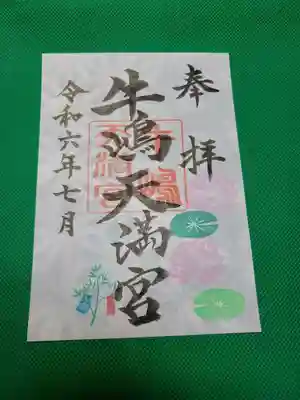 奉拝
牛嶋天満宮
令和六年七月